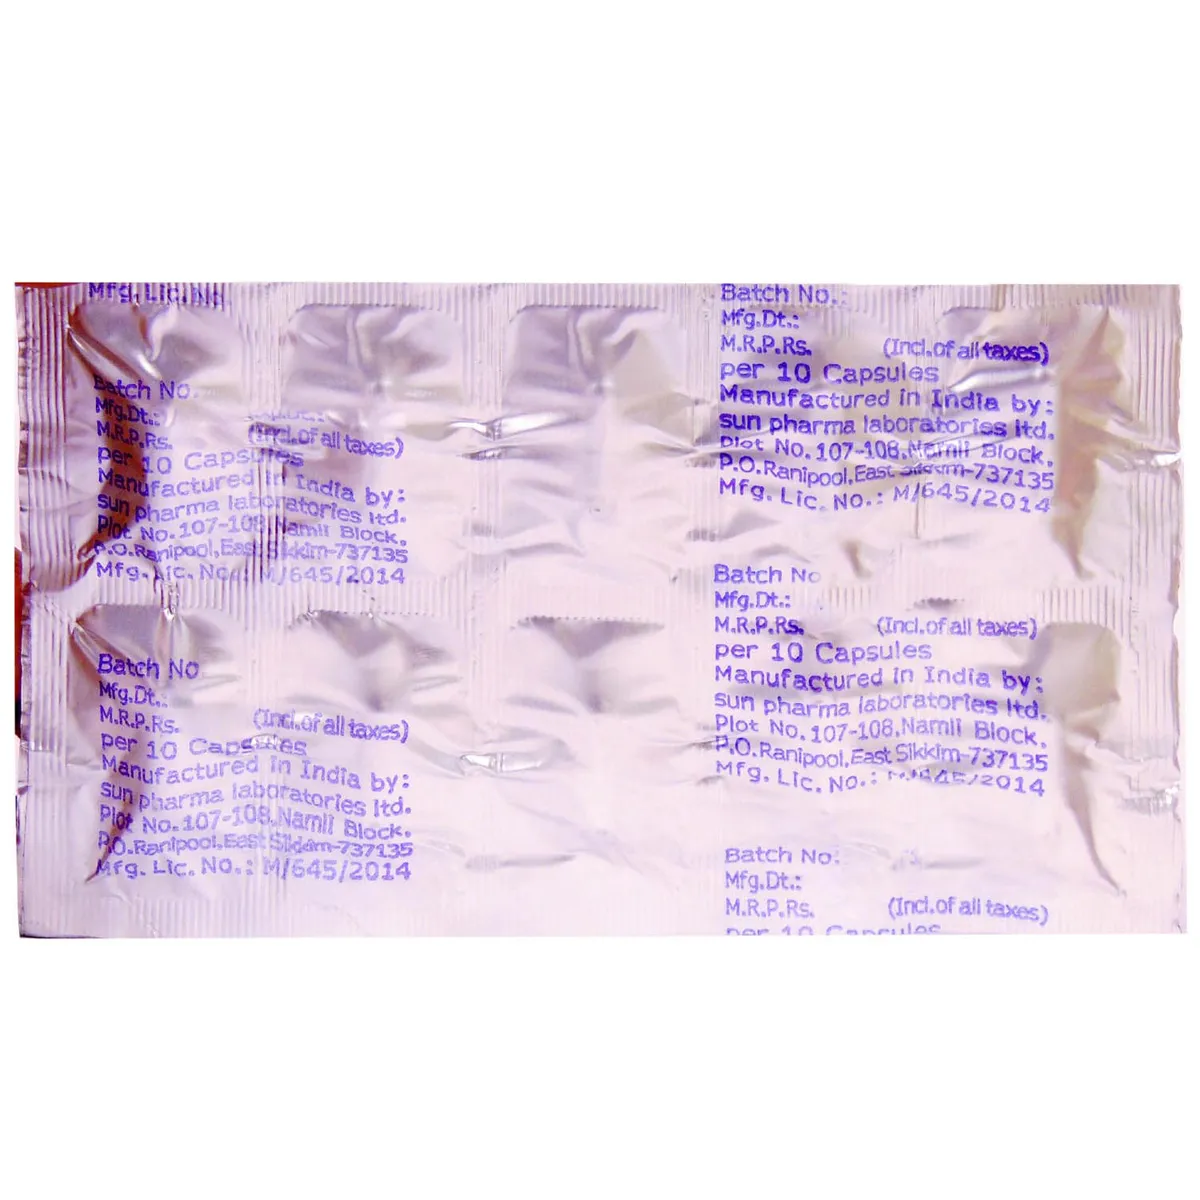 Mfg. Lic. No
Batch No.
Mfg.Dt.:
M.R.P.Rs. (Incl.of all taxes)
per 10 Capsules
Manufactured in India by:
sun pharma laboratories ltd.
Plot No.107-108,Namli Block,
P.O.Ranipool,East Sikkim-737135
Mfg. Lic. No.: M/645/2014
Batch No
Mfg.Dt.:
M.R.P.Rs. (Incl.of all taxes)
per 10 Capsules
Manufactured in India by:
sun pharma laboratories ltd.
Plot No.107-108,Namli Block,
P.O.Ranipool,East Sikkim-737135
Mfg. Lic. No.: M/645/2014
Batch No.:
Mfg.Dt.:
M.R.P.Rs. (Incl.of all taxes)
per 10 Capsules
Manufactured in India by:
sun pharma laboratories ltd.
Plot No.107-108,Namli Block,
P.O.Ranipool,East Sikkim-737135
Mfg. Lic. No.: M/645/2014
Batch No
Mfg.Dt.:
M.R.P.Rs. (Incl.of all taxes)
per 10 Capsules
Manufactured in India by:
sun pharma laboratories ltd.
Plot No.107-108,Namli Block,
P.O.Ranipool,East Sikkim-737135
Mfg. Lic. No.: M/645/2014
Batch No:
Mfg.Dt.:
M.R.P.Rs. (Incl.of all taxes)
per 10 Capsules